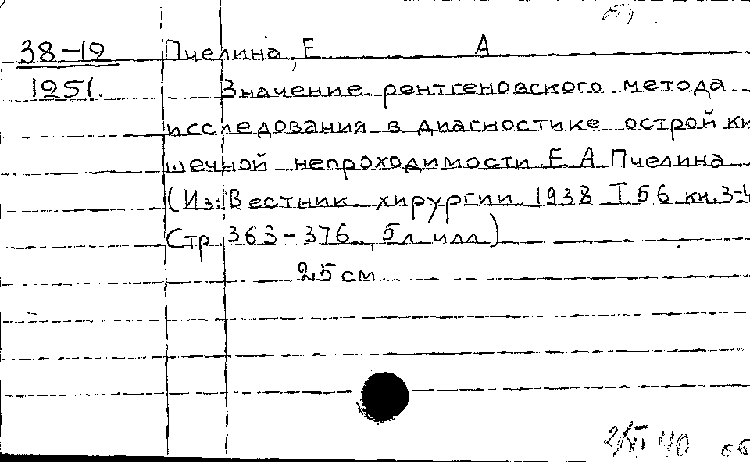 38-12 Пчелина, Е А
1951. Значение рентгеновского метода
исследования в диагностике острой ки
шечной непроходимости Е А Пчелина
(Из: Вестник хирургии 1938 Т 56 кн. 3-4
Стр 363-376, 5 л илл)
25 см
2/XI 40